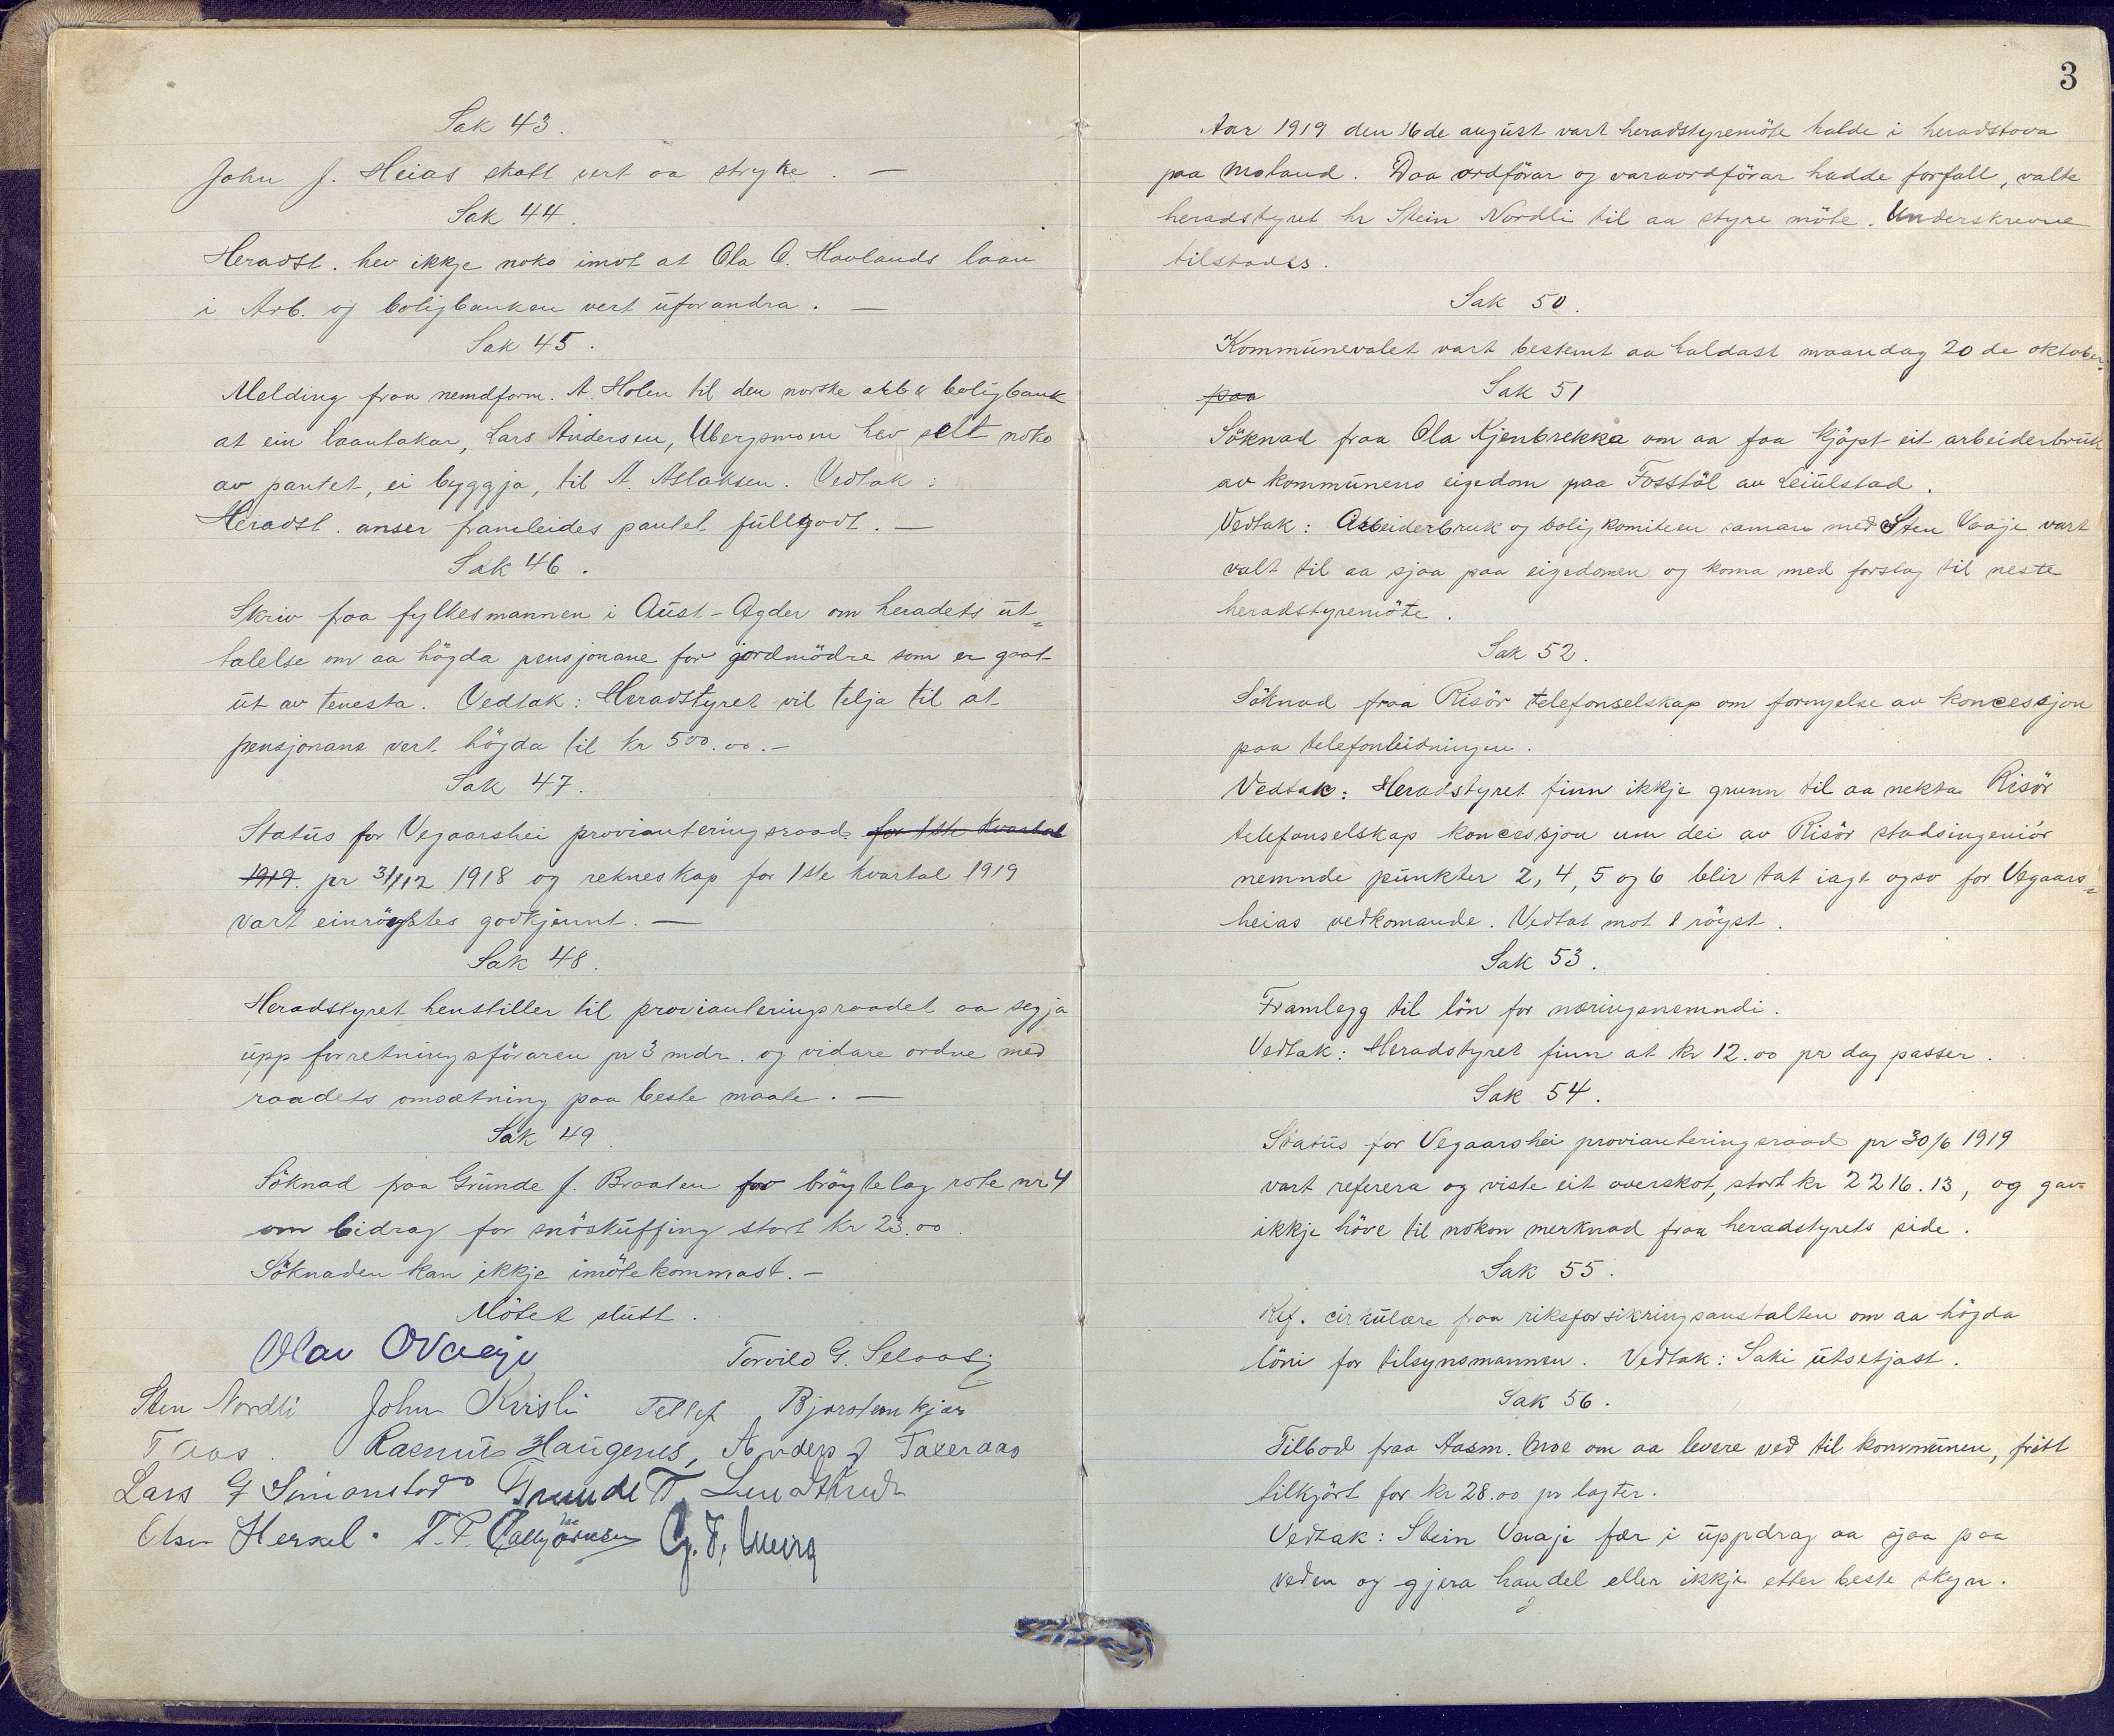 Sak 43.
John J. Heias skatt vert aa stryke. —
Sak 44.
Heradst. hev ikkje noko imot at Ola O. Hovlands laan
i Arb. og boligbanken vert uforandra. —
Sak 45.
Melding fraa nemdform. A. Holen til den norske arb & boligbank
at ein laantakar, Lars Andersen, Ubergsmoen hev selt noko
av pantet, ei byggja, til A. Aslaksen. Vedtak:
Heradst. anser framleides pantet fullgodt. —
Sak 46.
Skriv fraa fylkesmannen i Aust-Agder om heradets ut=
talelse om aa högda pensjonane for jordmödre som er gaat
ut av tenesta. Vedtak: Heradstyret vil telja til at
pensjonane vert högda til kr 500.00. —
Sak 47.
Status for Vegaarshei provianteringsraad for 1ste kvartal
1919. pr 31/12 1918 og rekneskap for 1ste kvartal 1919
vart einröystes godkjennt. —
Sak 48.
Heradstyret henstiller til provianteringsraadet aa segja
upp forretningsföraren pr 3 mdr. og vidare ordne med
raadets omsætning paa beste maate. —
Sak 49.
Söknad fraa Grunde J. Braaten for bröytelag rote nr 4
om bidrag for snöskuffing stort kr 23.00.
Söknaden kan ikkje imötekommast. —
Mötet slutt.
Olav O Vaaje Torvild G. Selaas
Sten Nordli John Kvisli Tellef Bjorstemkjær
T Aas. Rasmus Haugenes, Anders J Taxeraas
Lars G Simonstad Grunde T. Lundtveit
Olsen Hersel. T. P.
3
Aar 1919 den 16de august vart heradstyremöte halde i heradstova
paa Moland. Daa ordförar og varaordförar hadde forfall, valte
heradstyret hr Stein Nordli til aa styre möte. Underskrevne
tilstades.
Sak 50.
Kommunevalet vart bestemt aa haldast maandag 20de oktober.
paa Sak 51
Söknad fraa Ola Kjenbrekka om aa faa kjöpt eit arbeiderbruk
av kommunens eigedom paa Fosstöl av Leiulstad.
Vedtak: Arbeiderbruk og boligkomiteen saman med Sten Vaaje vart
valt til aa sjaa paa eigedomen og koma med forslag til neste
heradstyremöte.
Sak 52.
Söknad fraa Risör telefonselskap om fornyelse av koncessjon
paa telefonleidningen.
Vedtak: Heradstyret finn ikkje grunn til aa nekta Risör
telefonselskap koncessjon um dei av Risör stadsingeniör
nemnde punkter 2, 4, 5 og 6 blir tat iagt ogso for Vegaars=
heias vedkomande. Vedtat mot 1 röyst.
Sak 53.
Framlegg til lön for næringsnemndi.
Vedtak: Heradstyret finn at kr 12.00 pr dag passer.
Sak 54.
Status for Vegaarshei provianteringsraad pr 30/6 1919
vart referera og viste eit overskot, stort kr 2216.13, og gav
ikkje höve til nokon merknad fraa heradstyrets side.
Sak 55.
Ref. cirkulære fraa riksforsikringsanstalten om aa högda
löni for tilsynsmannen. Vedtak: Saki utsetjast.
Sak 56.
Tilbod fraa Aasm. Moe om aa levere ved til kommunen, fritt
tilkjört for kr 28.00 pr lagter.
Vedtak: Stein Vaaje fær i uppdrag aa sjaa paa
veden og gjera handel eller ikkje etter beste skyn.